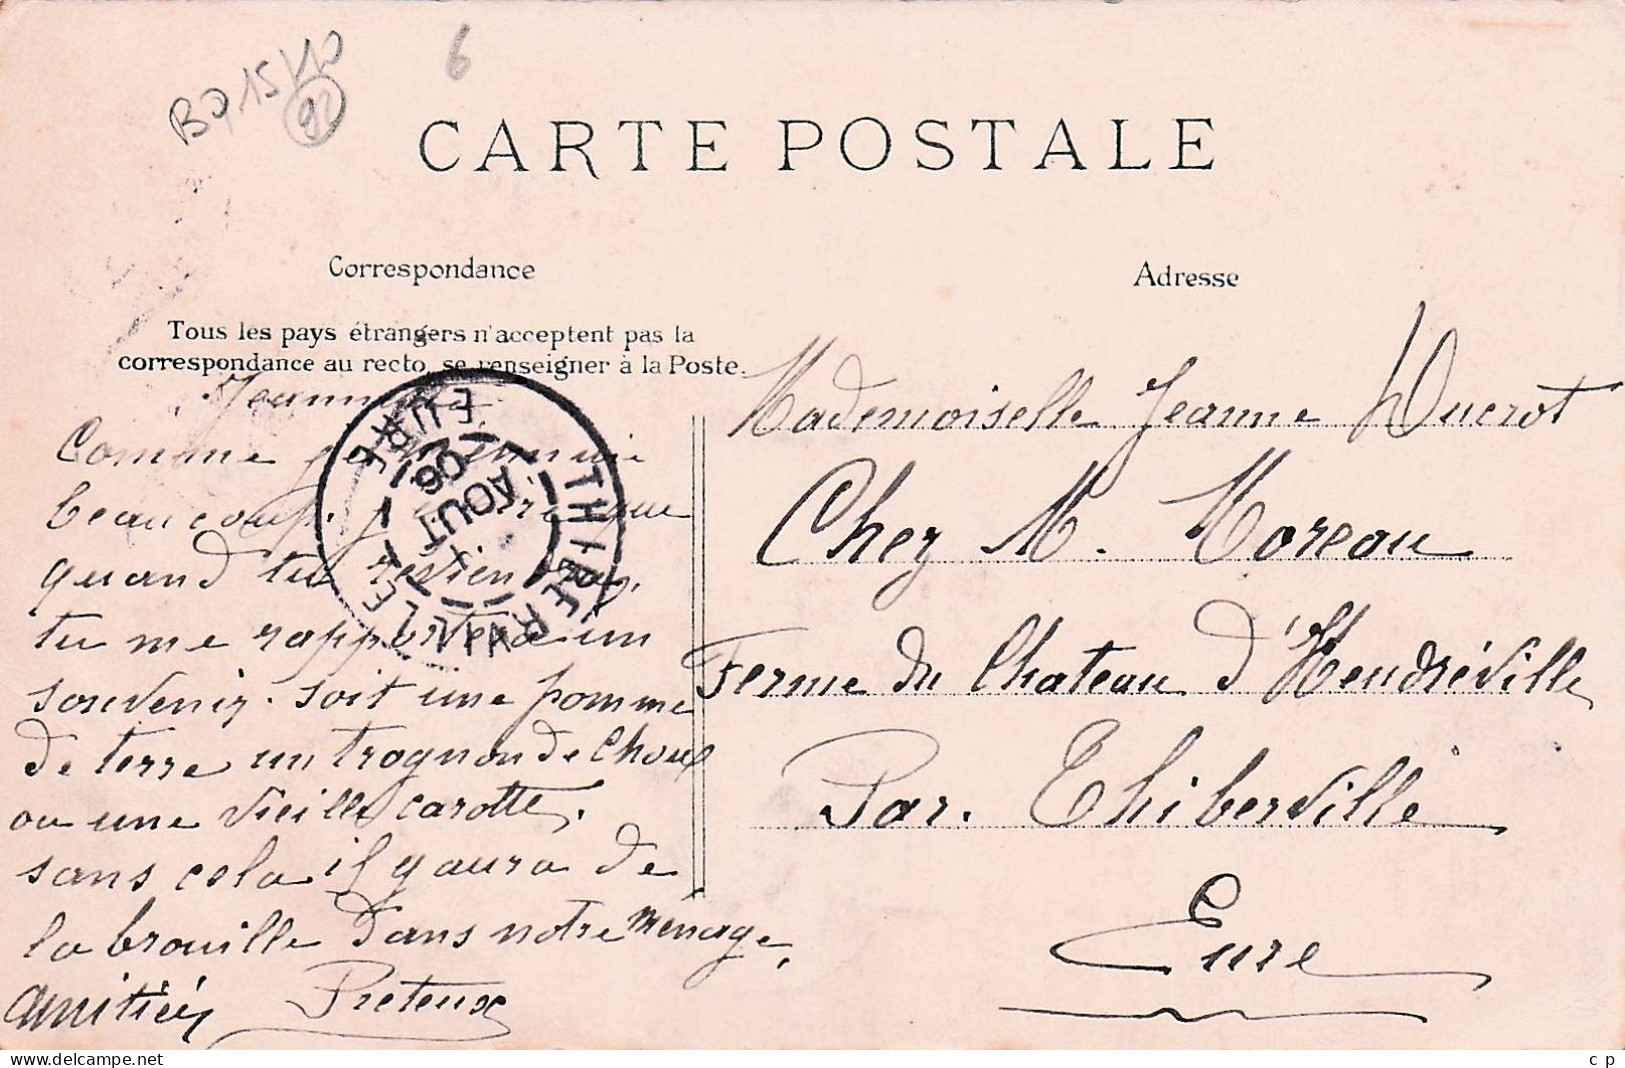 BP 15/10
92
6
CARTE POSTALE
Correspondance
Tous les pays étrangers n'acceptent pas la
correspondance au recto, se renseigner à la Poste.
Comme je
beaucoup. que
quand tu
tu me rapportera un
souvenir. soit une pomme
de terre un trognon de Choux
ou une vieille carotte.
sans cela il y aura de
la brouille dans notre ménage,
amitiés
THIBERVILLE
EURE
AOUT
06
Adresse
Mademoiselle Jeanne Ducrot
Chez M. Moreau
Ferme du Chateau d'Heudréville
Par. Thiberville
Eure
delcampe.net
c p